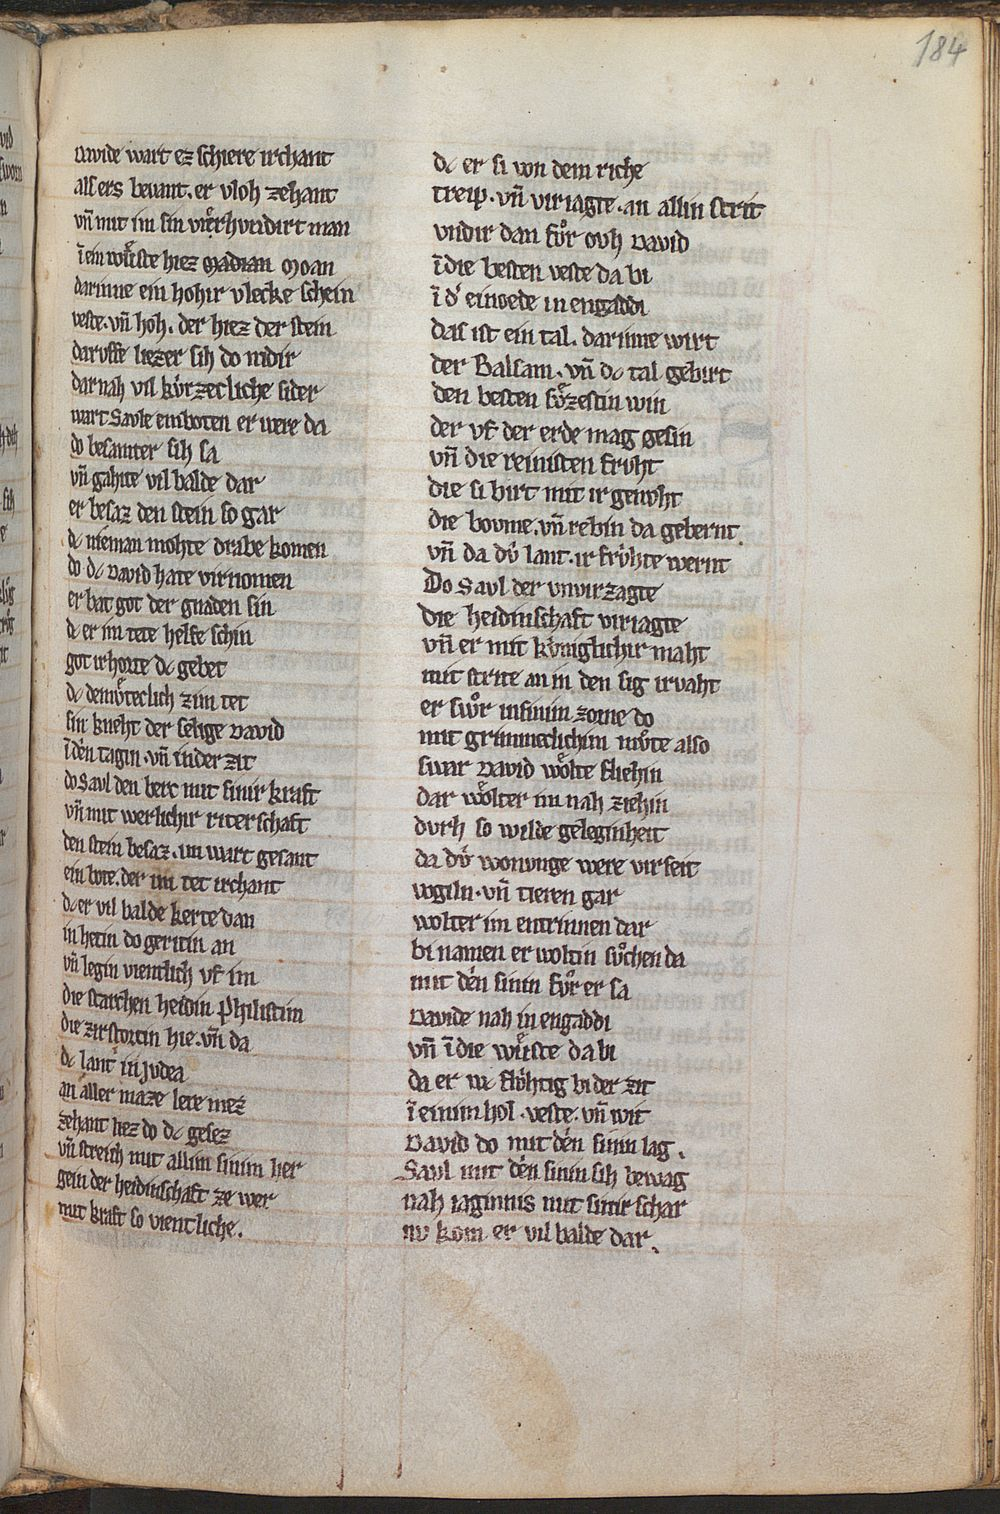 184
Davide wart ez schiere irchant
als ers bevant. er vloh zehant
vn̄ mit im sin vierhvndirt man
ī ein wu̇ste hiez Madian Moan
darinne ein hohir vlecke schein
veste. vn̄ hoh. der hiez der stein
darvffe liezer sih do nidir
darnah vil kv̊rzecliche sider
wart Savle enboten er were da
do besamter sih sa
vn̄ gahte vil balde dar
er besaz den stein so gar
dc nieman mohte drabe komen
do dc David hate virnomen
er bat got der gnaden sin
dc er im tete helfe schin
got irhorte dc gebet
dc demv̊teclich zim tet
sin kneht der selige David
ī dḗn tagin. vn̄ in der zit
do Savl den berc mit sinir kraft
vn̄ mit werlichir riterschaft
den stein besaz. im wart gesant
ein bote. der im tet irchant
dc er vil balde kerte dan
in hetin do geritin an
vn̄ legin vientlich vf im
die starchen heidin Philistim
die zirstortin hie. vn̄ da
dc lant in Jvdea
an aller maze lere mez
zehant liez do dc gesez
vn̄ streich mit allim sinim her
gein der heidinschaft ze wer
mit kraft so vientliche.
dc er si von dem riche
treip. vn̄ viriagte. an allin strit
vndir dan fv̊r ovh David
ī die besten veste da bi
ī d' einoede in engaddi
das ist ein tal. darinne wirt
der Balsam. vn̄ dc tal gebirt
den besten sv̊zestin win
der vf der erde mag gesin
vn̄ die reinisten frvht
die si birt mit ir genvht
die bovme. vn̄ rebin da gebernt
vn̄ da dv̍ lant. ir frv̍hte wernt
Do Savl der vnvirzagte
Die heidinschaft viriagte
vn̄ er mit kv̍niglichir maht
mit strite an in den sig irvaht
er swv̊r in sinim zorne do
mit grimmeclichim mv̊te also
swar David wo̍lte fliehin
dar wo̍lter im nah ziehin
dvrh so wilde geleginheit
da dv̍ wonvnge were virseit
vogiln. vn̄ tieren gar
wolter im entrinnen dar
bi namen er woltin sv̊chen da
mit dḗn sinin fv̊r er sa
Davide nah in engaddi
vn̄ ī die wu̍ste da bi
da er wc flv̍htig bi der zit
ī einim hol. veste. vn̄ wit
David do mit dḗn sinin lag.
Savl mit dḗn sinin sih bewag
nah iaginnis mit sinir schar
nv kom er vil balde dar.